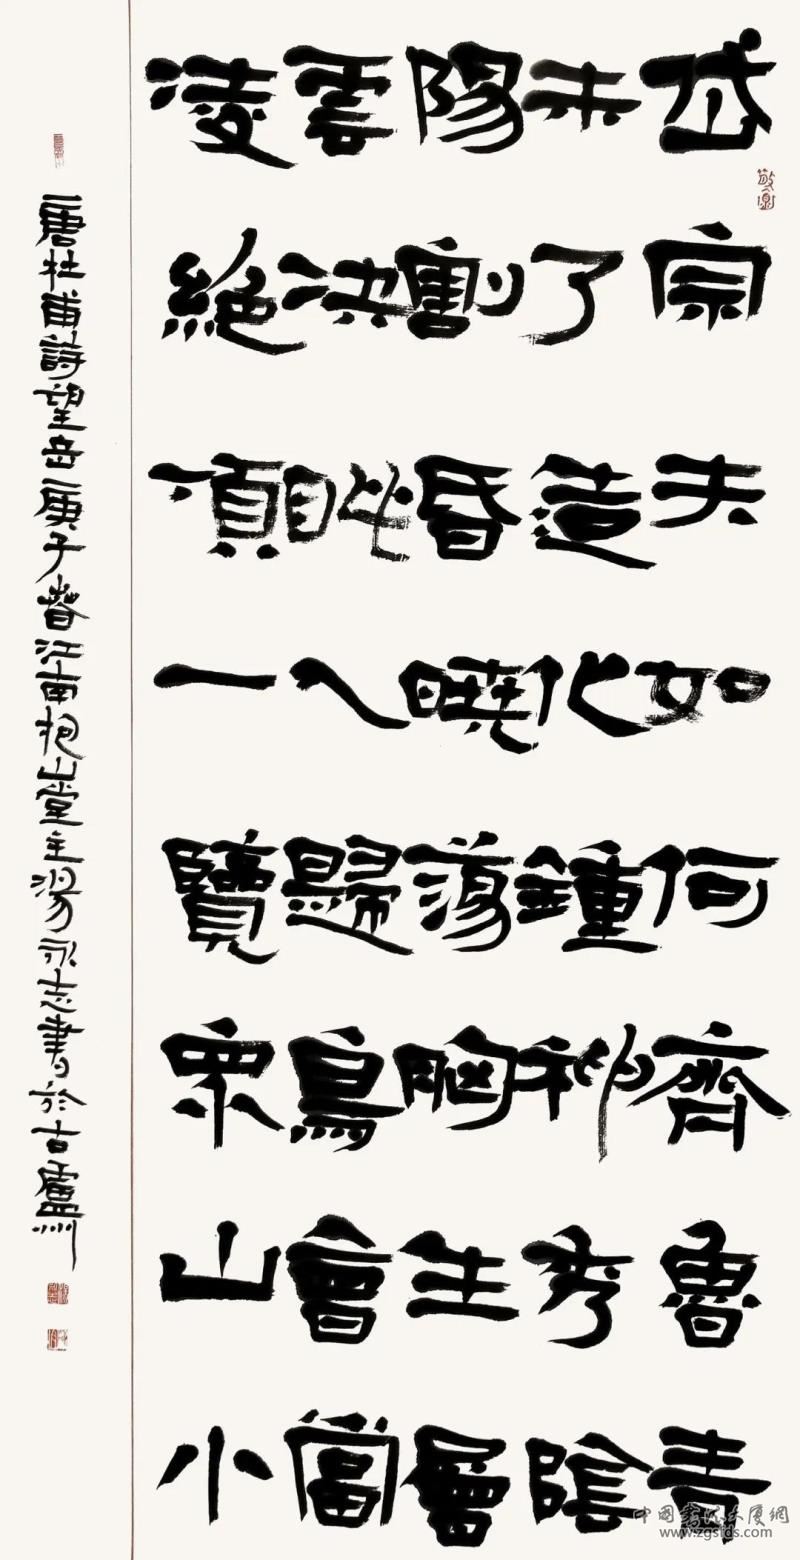 岱宗夫如何齊魯青
未了造化鍾神秀陰
陽割昏曉蕩胸生層
雲決眦入歸鳥會當
凌絕頂一覽眾山小
唐杜甫詩望岳庚子春江南抱山堂主湯永志書於古廬州
中國書法大厦網
www.zgsfds.com